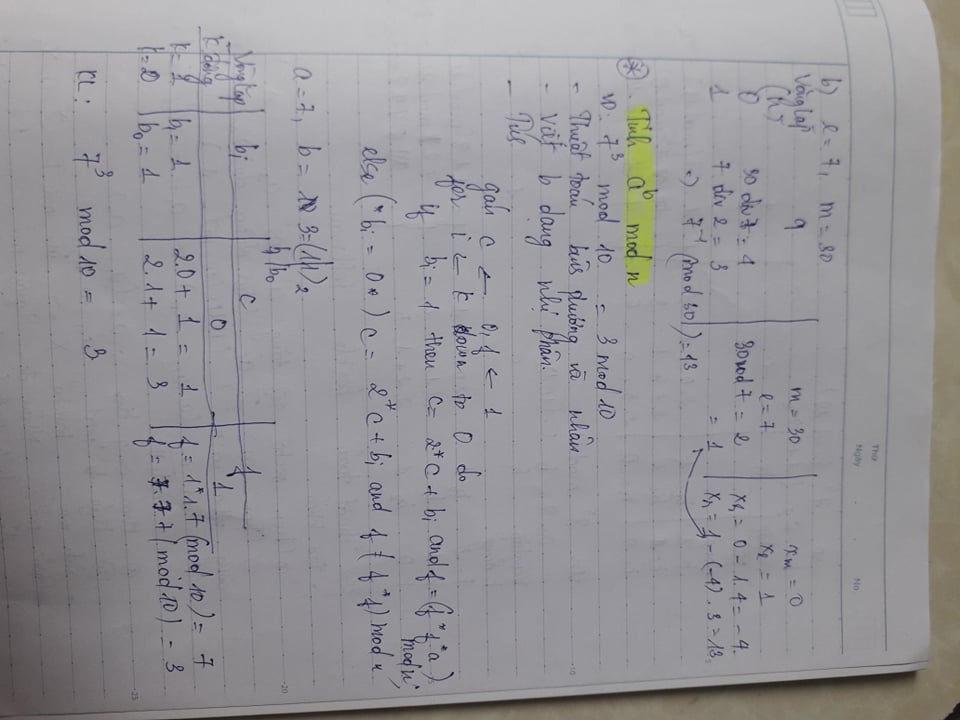 Thứ
Ngày No.
b) e = 7, m = 30
Vòng lặp q m = 30 xm = 0
(k) e = 7 xe = 1
0 30 div 7 = 4 30 mod 7 = 2 xr = 0 - 1.4 = -4.
1 7 div 2 = 3 = 1 xr = 1 - (-4).3 = 13
=) 7⁻¹ (mod 30) = 13
* . Tính a^b mod n
VD: 7³ mod 10 = 3 mod 10
- Thuật toán bình phương và nhân
- Viết b dạng nhị phân.
-
gán c ← 0, f ← 1
for i ← k down to 0 do
if bi = 1 then c = 2*c + bi and f = (f*f*a)
mod n;
else (*bi = 0*) c = 2*c + bi and f = (f*f) mod n
a = 7, b = 3 = (11)₂
b1 b0
Vòng lặp bi c f
0 1
k = 1 b1 = 1 2.0 + 1 = 1 f = 1*1.7 (mod 10) = 7
k = 0 b0 = 1 2.1 + 1 = 3 f = 7.7.7 (mod 10) = 3
KL: 7³ mod 10 = 3
10
20
25